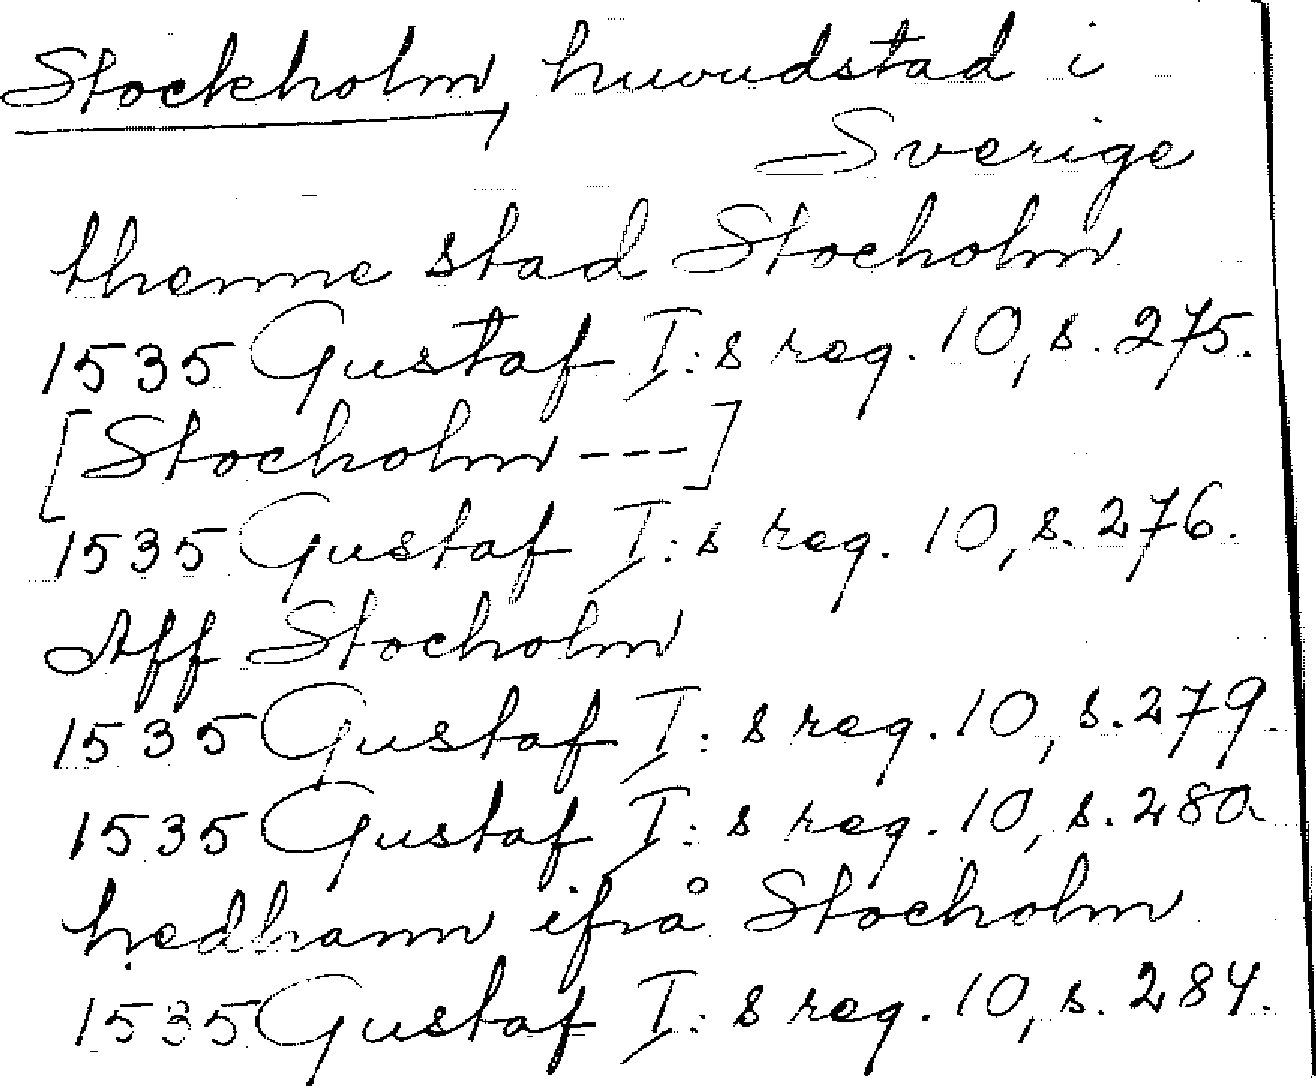 Stockholm, huvudstad i
Sverige
thenne stad Stocholm
1535 Gustaf I:s reg. 10, s. 275.
[Stocholm ---]
1535 Gustaf I:s reg. 10, s. 276.
Aff Stocholm
1535 Gustaf I:s reg. 10, s. 279.
1535 Gustaf I:s reg. 10, s. 280.
hedhann ifrå Stocholm
1535 Gustaf I:s reg. 10, s. 284.